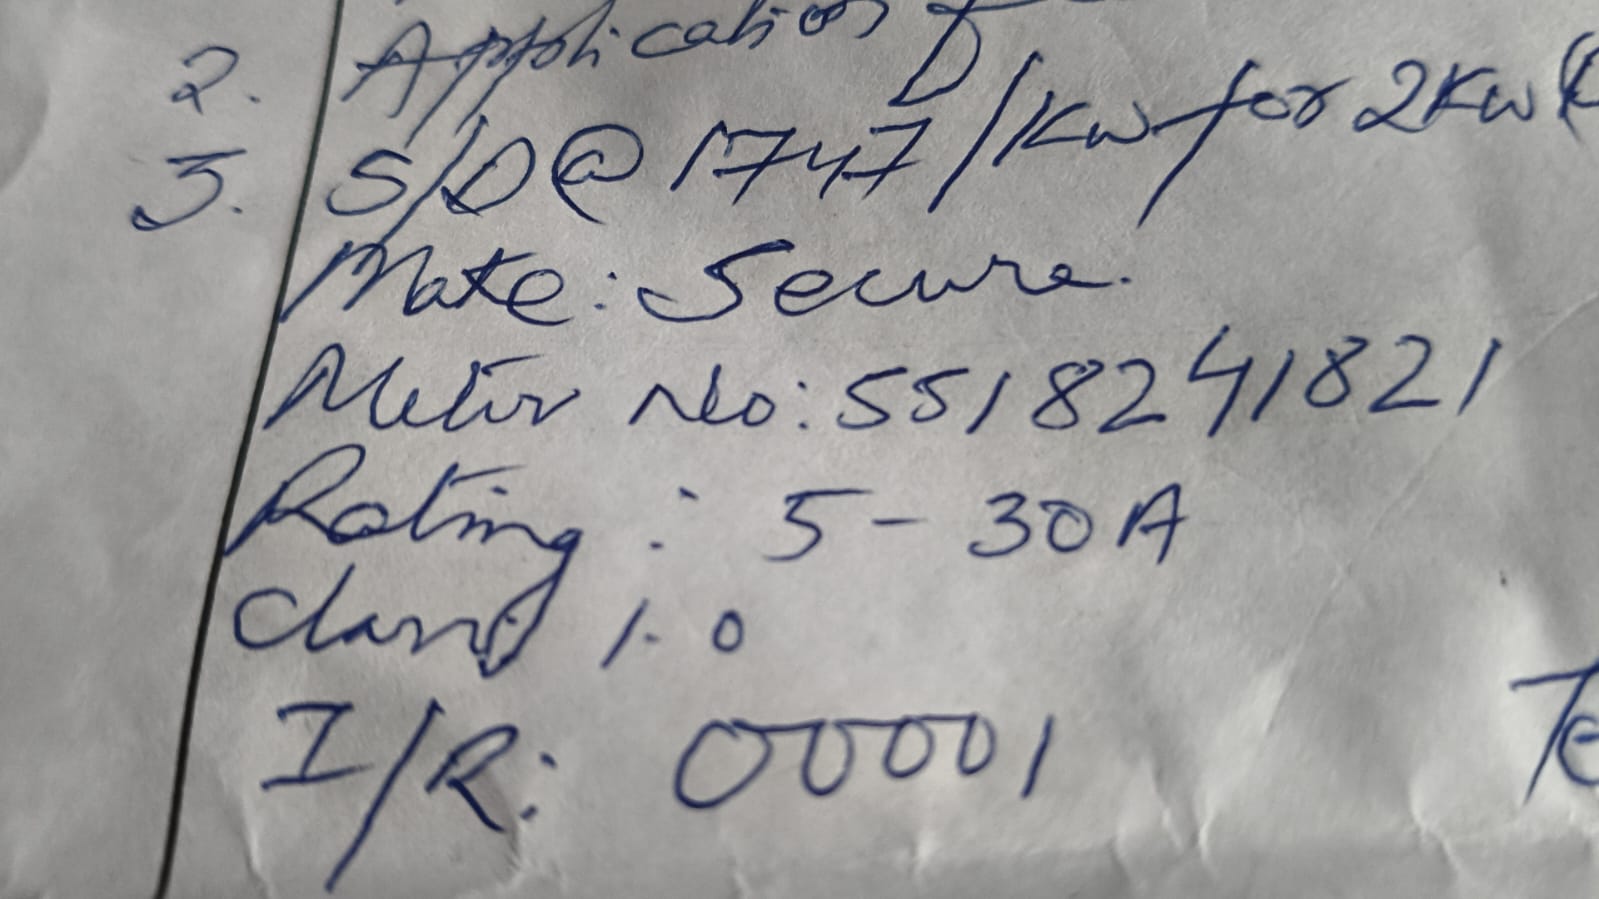 2. Application F
3. S/D @ 1747/Kw for 2Kw (
Make: Secure.
Meter No: 5518241821
Rating : 5 - 30A
Class 1.0
I/R: 00001
Te